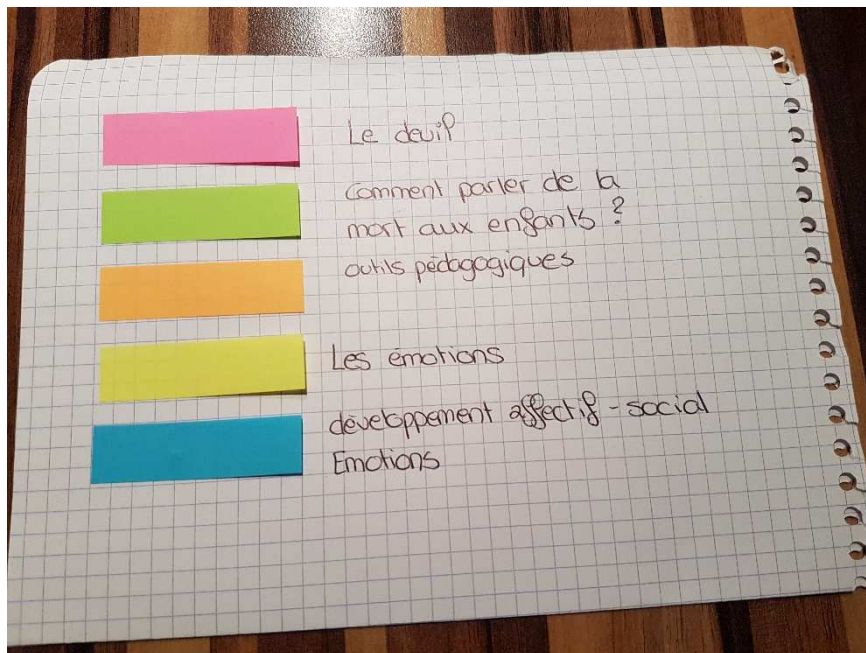 Le deuil
Comment parler de la
mort aux enfants ?
outils pédagogiques
Les émotions
développement affectif - social
Emotions